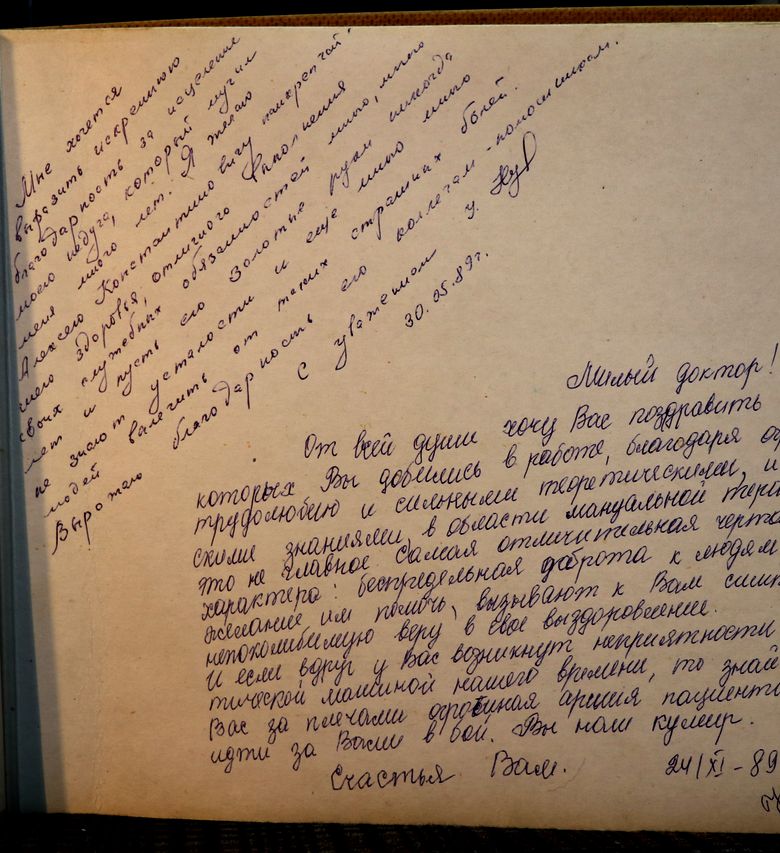 Мне хочется
выразить искреннюю
благодарность за исцеление
моего недуга, который мучил
меня много лет. Я желаю
Алексею Константиновичу наикрепчай-
шего здоровья, отличного выполнения
своих служебных обязанностей много, много
лет и пусть его золотые руки никогда
не знают усталости и еще много много
людей вылечить от таких страшных болей.
Выражаю благодарность его коллегам-помощникам.
С уважением
30.05.89г.
Милый доктор!
От всей души хочу Вас поздравить
которых Вы добились в работе, благодаря
трудолюбию и сильными теоретическими, и
скими знаниями, в области мануальной тера
это не главное. Самая отличительная черта
характера: беспредельная доброта к людям
желание им помочь, вызывают к Вам симп
непоколибимую веру в свое выздоровление.
И если вдруг у Вас возникнут неприятности
тической машиной нашего времени, то знай
Вас за плечами огромная армия пациенто
идти за Вами в бой. Вы наш кумир.
Счастья Вам. 24/XI-89